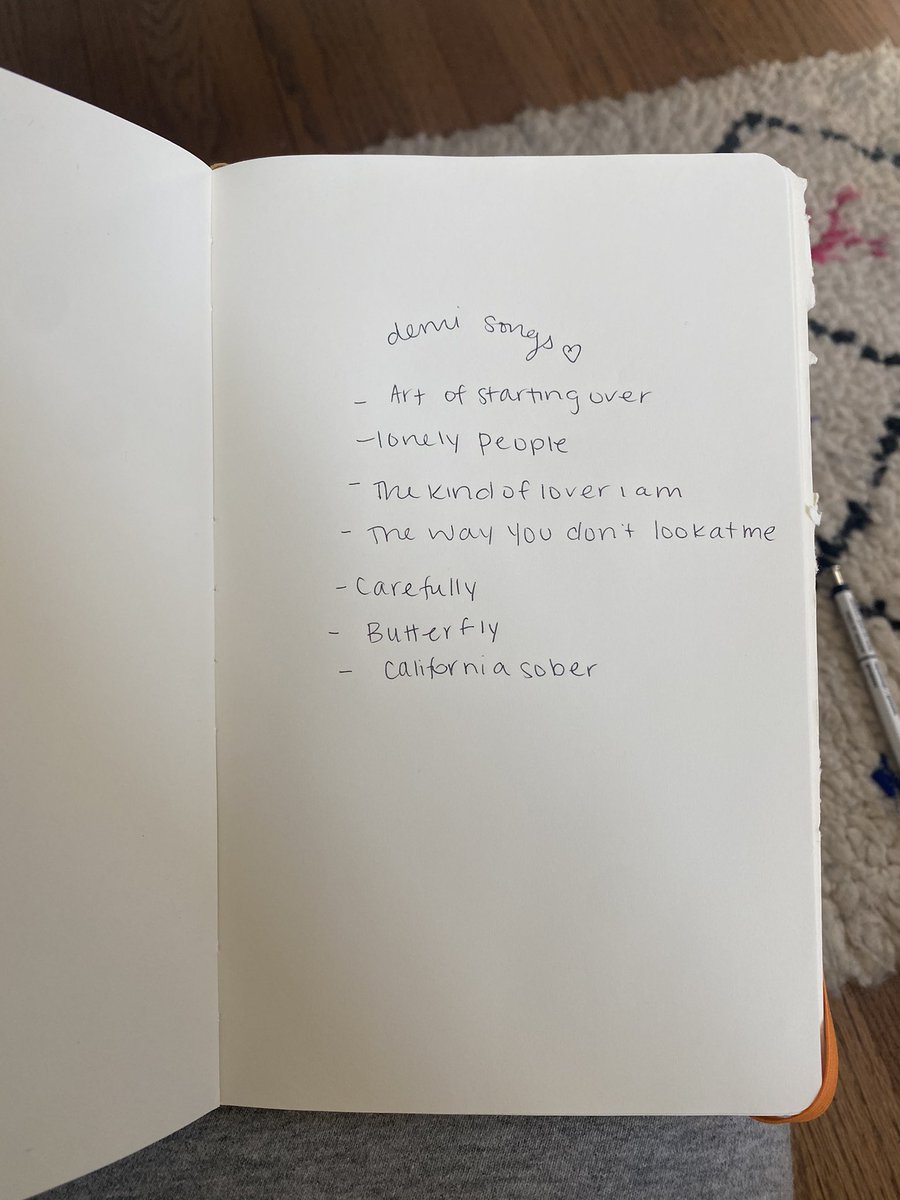 demi songs ♡
- Art of starting over
- lonely people
- The kind of lover i am
- The way you don't look at me
- Carefully
- Butterfly
- California sober